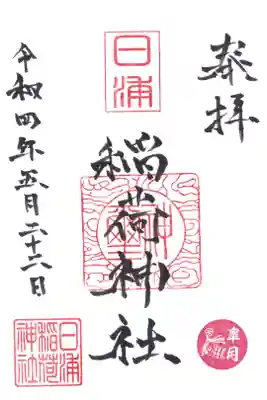 奉拝
日浦
稲荷神社
令和四年五月二十二日
日浦
稲荷
神社
皐月